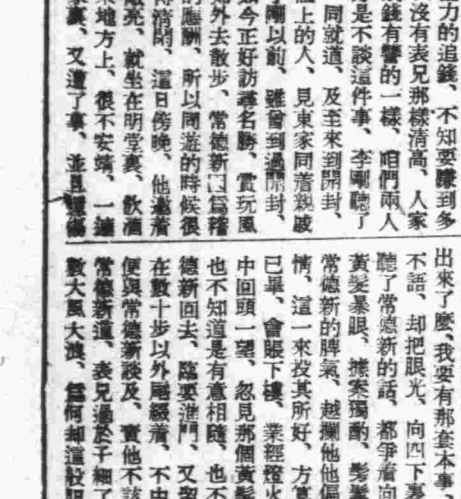 力的追錢、不知要賺到多
沒有表兄那樣清高、人家
錢有讐的一樣、咱們兩人
是不談這件事、李剛聽了
同就道、及至來到開封、
上的人、見東家同着親戚
剛以前、雖曾到過開封、
今正好訪尋名勝、賞玩風
外去散步、常德新因爲稽
的應酬、所以同遊的時候很
清閒、這日傍晚、他邀着
亮、就坐在明堂裏、飲酒
地方上、很不安靖、一
裏、又遭了事、並且
出來了麽、我要有那套本事、
不語、却把眼光、向四下裏
聽了常德新的話、都爭着向
黃髮暴眼、據案獨酌、
常德新的脾氣、越攔他他偏
情、這一來投其所好、方
已畢、會賬下樓、業經燈火
中回頭一望、忽見那個黃髮
也不知道是有意相隨、也不
德新回去、臨要進門、又
在數十步以外尾綴着、不由
便與常德新談及、責他不該
常德新道、表兄過於子細了
數大風大浪、爲何却這般